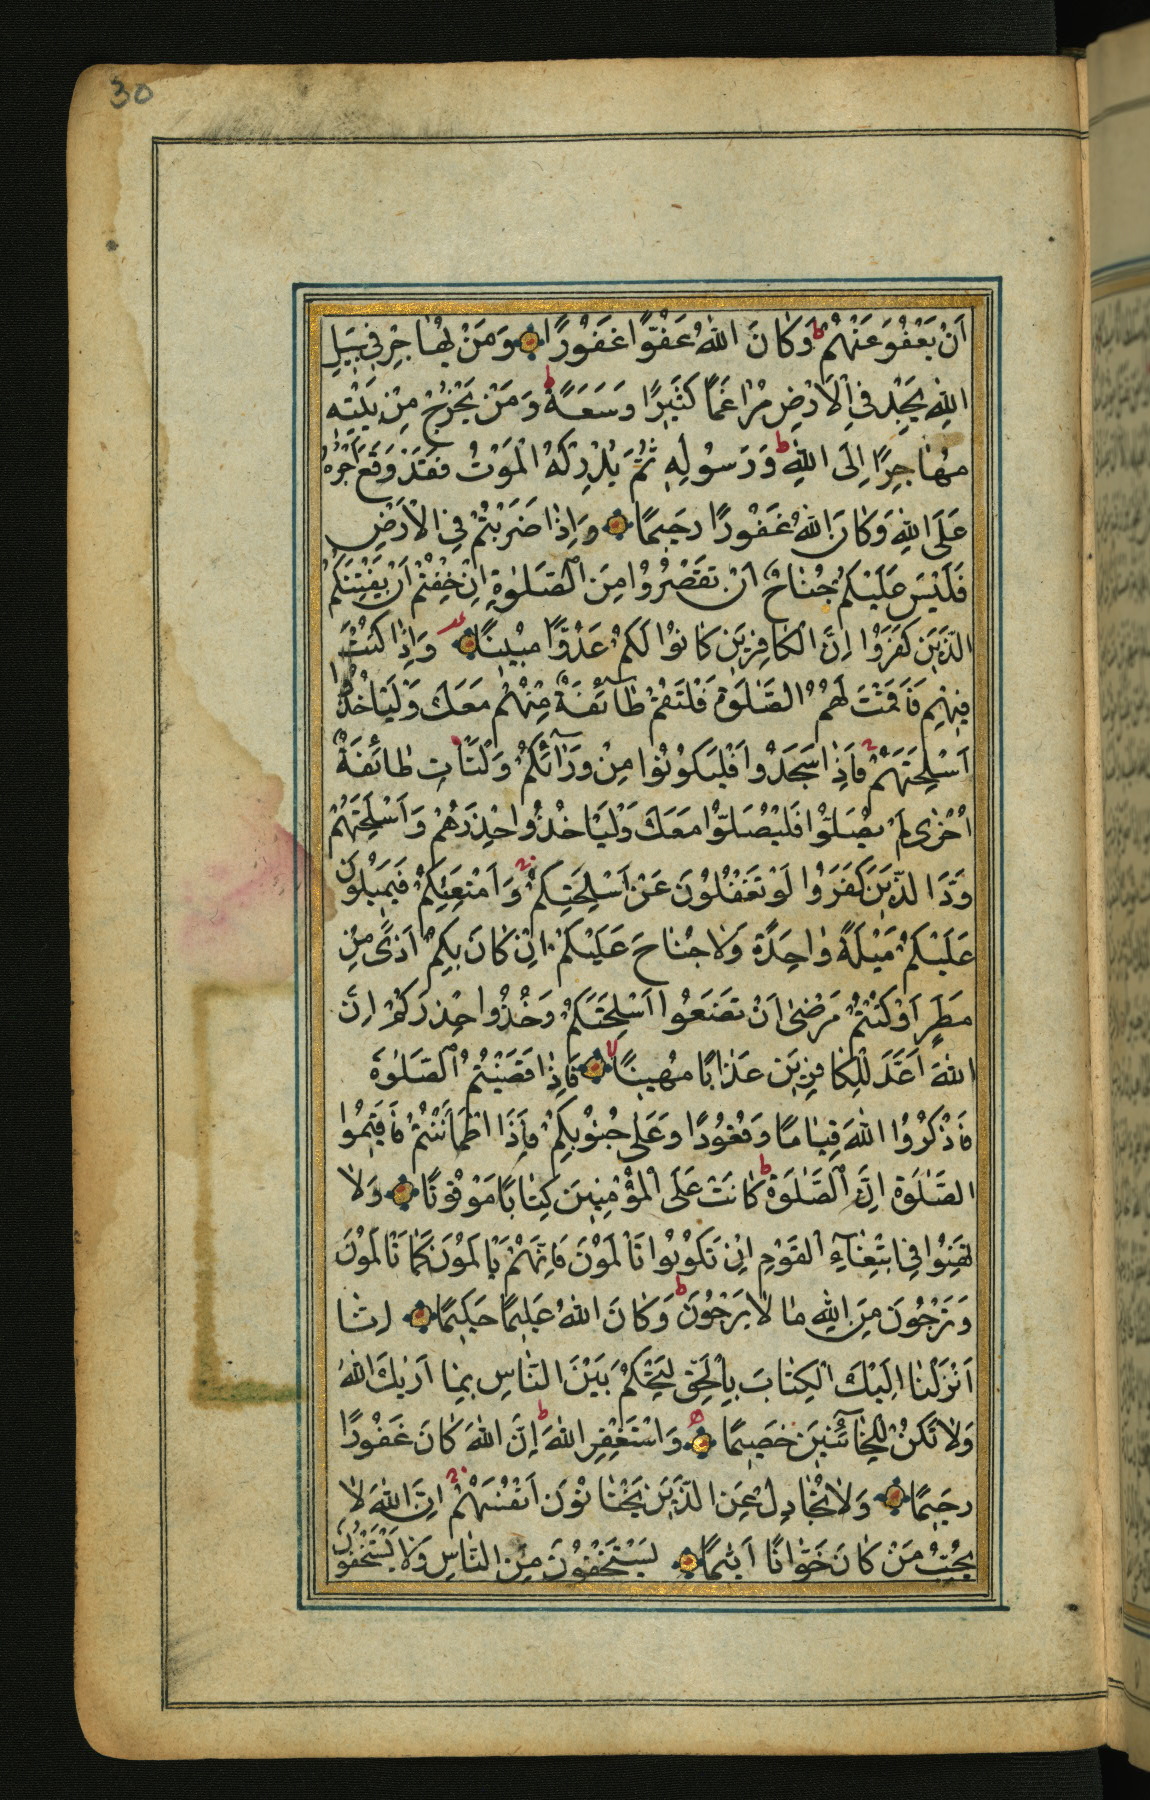 30
اَنْ يَعْفُوَ عَنْهُمْ ط وَكَانَ اللهُ عَفُوًّا غَفُورًا وَمَنْ يُهَاجِرْ فِي سَبِيلِ
اللهِ يَجِدْ فِي الْاَرْضِ مُرَاغَمًا كَثِيرًا وَسَعَةً ط وَمَنْ يَخْرُجْ مِنْ بَيْتِهِ
مُهَاجِرًا اِلَى اللهِ وَرَسُولِهِ ثُمَّ يُدْرِكْهُ الْمَوْتُ فَقَدْ وَقَعَ اَجْرُهُ
عَلَى اللهِ ط وَكَانَ اللهُ غَفُورًا رَحِيمًا وَاِذَا ضَرَبْتُمْ فِي الْاَرْضِ
فَلَيْسَ عَلَيْكُمْ جُنَاحٌ اَنْ تَقْصُرُوا مِنَ الصَّلٰوةِ اِنْ خِفْتُمْ اَنْ يَفْتِنَكُمُ
الَّذِينَ كَفَرُوا اِنَّ الْكَافِرِينَ كَانُوا لَكُمْ عَدُوًّا مُبِينًا وَاِذَا كُنْتَ
فِيهِمْ فَاَقَمْتَ لَهُمُ الصَّلٰوةَ فَلْتَقُمْ طَائِفَةٌ مِنْهُمْ مَعَكَ وَلْيَاْخُذُوا
اَسْلِحَتَهُمْ فَاِذَا سَجَدُوا فَلْيَكُونُوا مِنْ وَرَآئِكُمْ وَلْتَاْتِ طَائِفَةٌ
اُخْرٰى لَمْ يُصَلُّوا فَلْيُصَلُّوا مَعَكَ وَلْيَاْخُذُوا حِذْرَهُمْ وَاَسْلِحَتَهُمْ
وَدَّ الَّذِينَ كَفَرُوا لَوْ تَغْفُلُونَ عَنْ اَسْلِحَتِكُمْ وَاَمْتِعَتِكُمْ فَيَمِيلُونَ
عَلَيْكُمْ مَيْلَةً وَاحِدَةً وَلَا جُنَاحَ عَلَيْكُمْ اِنْ كَانَ بِكُمْ اَذًى مِنْ
مَطَرٍ اَوْ كُنْتُمْ مَرْضٰى اَنْ تَضَعُوا اَسْلِحَتَكُمْ وَخُذُوا حِذْرَكُمْ اِنَّ
اللهَ اَعَدَّ لِلْكَافِرِينَ عَذَابًا مُهِينًا فَاِذَا قَضَيْتُمُ الصَّلٰوةَ
فَاذْكُرُوا اللهَ قِيَامًا وَقُعُودًا وَعَلٰى جُنُوبِكُمْ فَاِذَا اطْمَاْنَنْتُمْ فَاَقِيمُوا
الصَّلٰوةَ اِنَّ الصَّلٰوةَ ط كَانَتْ عَلَى الْمُؤْمِنِينَ كِتَابًا مَوْقُوتًا وَلَا
تَهِنُوا فِي ابْتِغَآءِ الْقَوْمِ اِنْ تَكُونُوا تَاْلَمُونَ فَاِنَّهُمْ يَاْلَمُونَ كَمَا تَاْلَمُونَ
وَتَرْجُونَ مِنَ اللهِ مَا لَا يَرْجُونَ ط وَكَانَ اللهُ عَلِيمًا حَكِيمًا اِنَّا
اَنْزَلْنَا اِلَيْكَ الْكِتَابَ بِالْحَقِّ لِتَحْكُمَ بَيْنَ النَّاسِ بِمَا اَرٰيكَ اللهُ
وَلَا تَكُنْ لِلْخَائِنِينَ خَصِيمًا وَاسْتَغْفِرِ اللهَ ط اِنَّ اللهَ كَانَ غَفُورًا
رَحِيمًا وَلَا تُجَادِلْ عَنِ الَّذِينَ يَخْتَانُونَ اَنْفُسَهُمْ اِنَّ اللهَ لَا
يُحِبُّ مَنْ كَانَ خَوَّانًا اَثِيمًا يَسْتَخْفُونَ مِنَ النَّاسِ وَلَا يَسْتَخْفُونَ